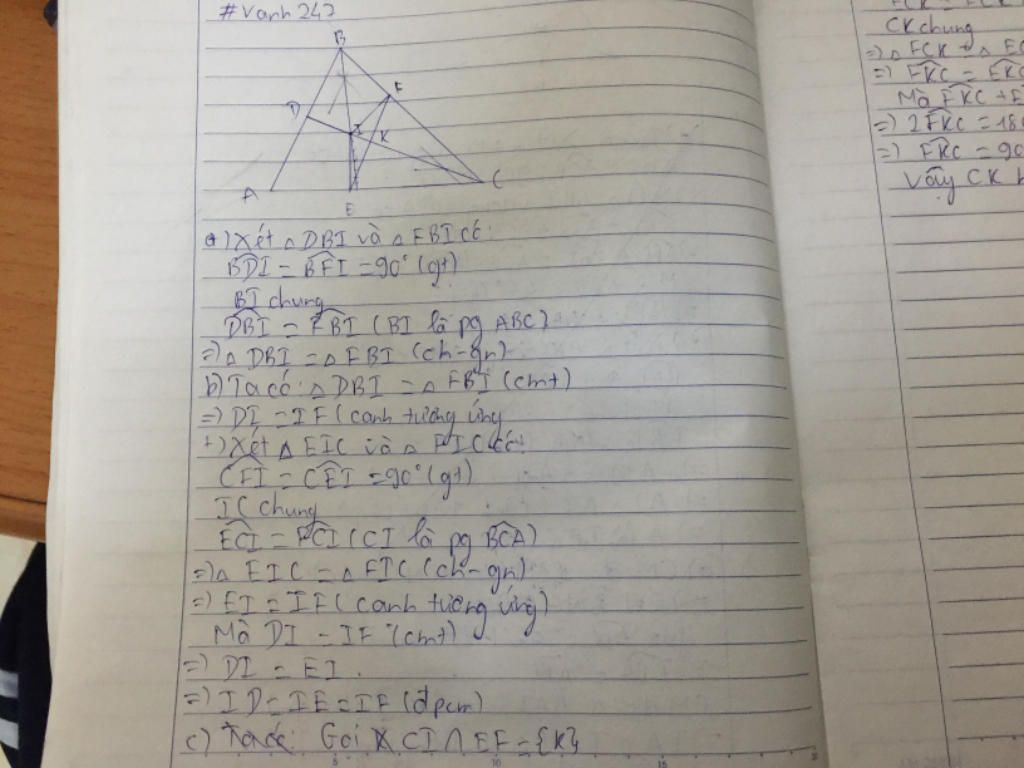 #Vanh247
B
D
F
I
K
A
E
C
a) Xét △DBI và △FBI có:
BDI = BFI = 90° (gt)
BI chung
DBI = FBI (BI là pg ABC)
=) △ DBI = △ FBI (ch-gn)
b) Ta có: △ DBI = △ FBI (cmt)
=) DI = IF (cạnh tương ứng
+) Xét △ EIC và △ FIC có:
CFI = CEI = 90° (gt)
IC chung
ECI = FCI (CI là pg BCA)
=) △ EIC = △ FIC (ch-gn)
=) EI = IF (cạnh tương ứng)
Mà DI = IF (cmt)
=) DI = EI.
=) ID = IE = IF (đpcm)
c) Ta có: Gọi CI ∩ EF = {K}
CK chung
=) △ FCK = △ EC
=) FKC = EKC
Mà FKC + E
=) 2FKC = 180
=) FKC = 90
Vậy CK